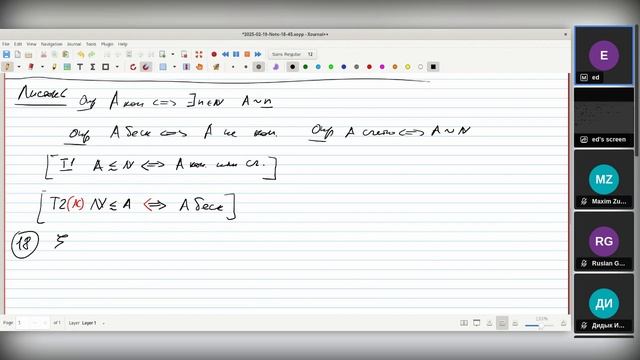 *2025-02-19-Note-18-45.xopp - Xournal++
File Edit View Navigation Journal Tools Plugin Help
Sans Regular 12
Листок 6 Опр A кон ⟺ ∃n∈N A~n
Опр A беск ⟺ A не кон. Опр A счетно ⟺ A~N
[T1 A ≲ N ⟺ A кон. или сч.]
[T2(к) N ≲ A ⟺ A беск]
18
Page 1 of 1 Layer: Layer 1 133%
E
ed
ed's screen
MZ
Maxim Zu...
RG
Ruslan G...
ДИ
Дидык И...